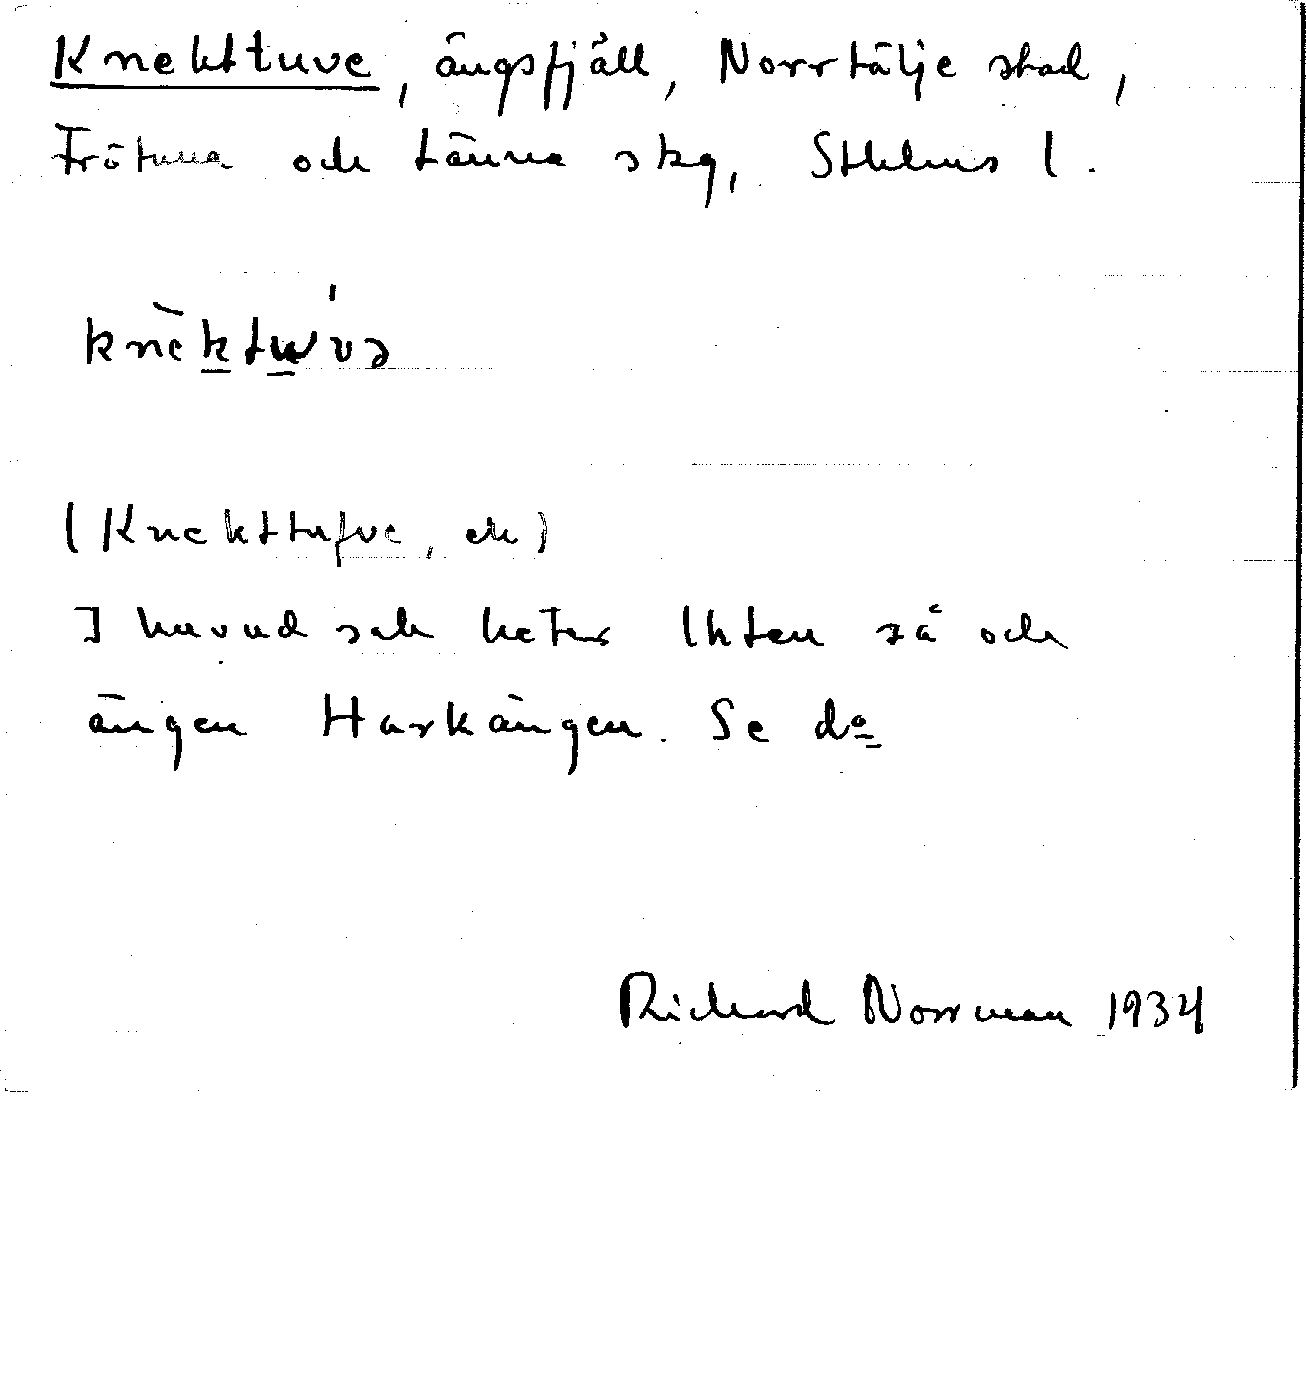 Knekttuve, ängsfjäll, Norrtälje stad,
Frötuna och Länna skg, Sthlms l.
knèktu̇̀və
(Knekttufve, ek)
I huvudsak heter lhten så och
ängen Harkängen. Se dº
Richard Norrman 1934